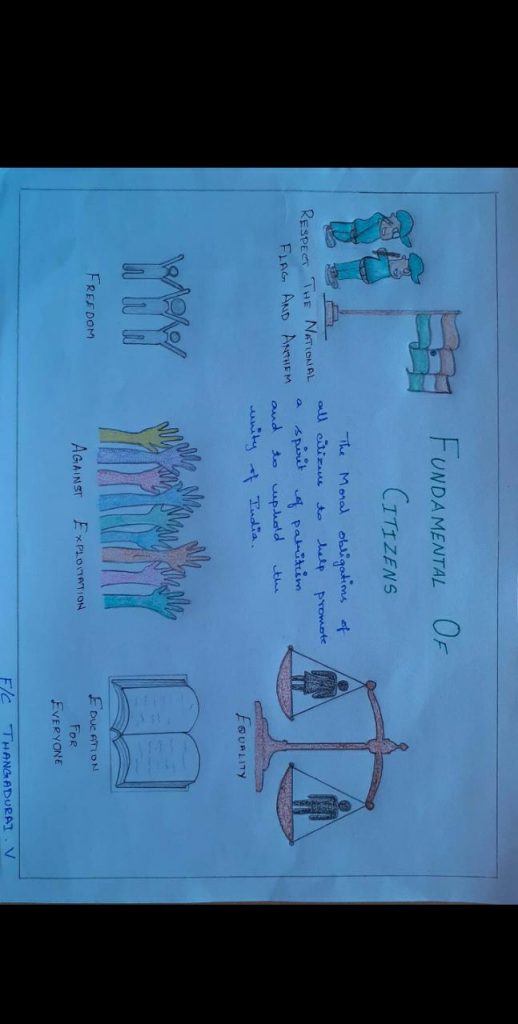 FUNDAMENTAL OF
CITIZENS
RESPECT THE NATIONAL
FLAG AND ANTHEM
The Moral obligations of
all citizens to help promote
a spirit of patriotism
and to uphold the
unity of India.
EQUALITY
FREEDOM
AGAINST EXPLOITATION
EDUCATION
FOR
EVERYONE
F/C THANGADURAI.V